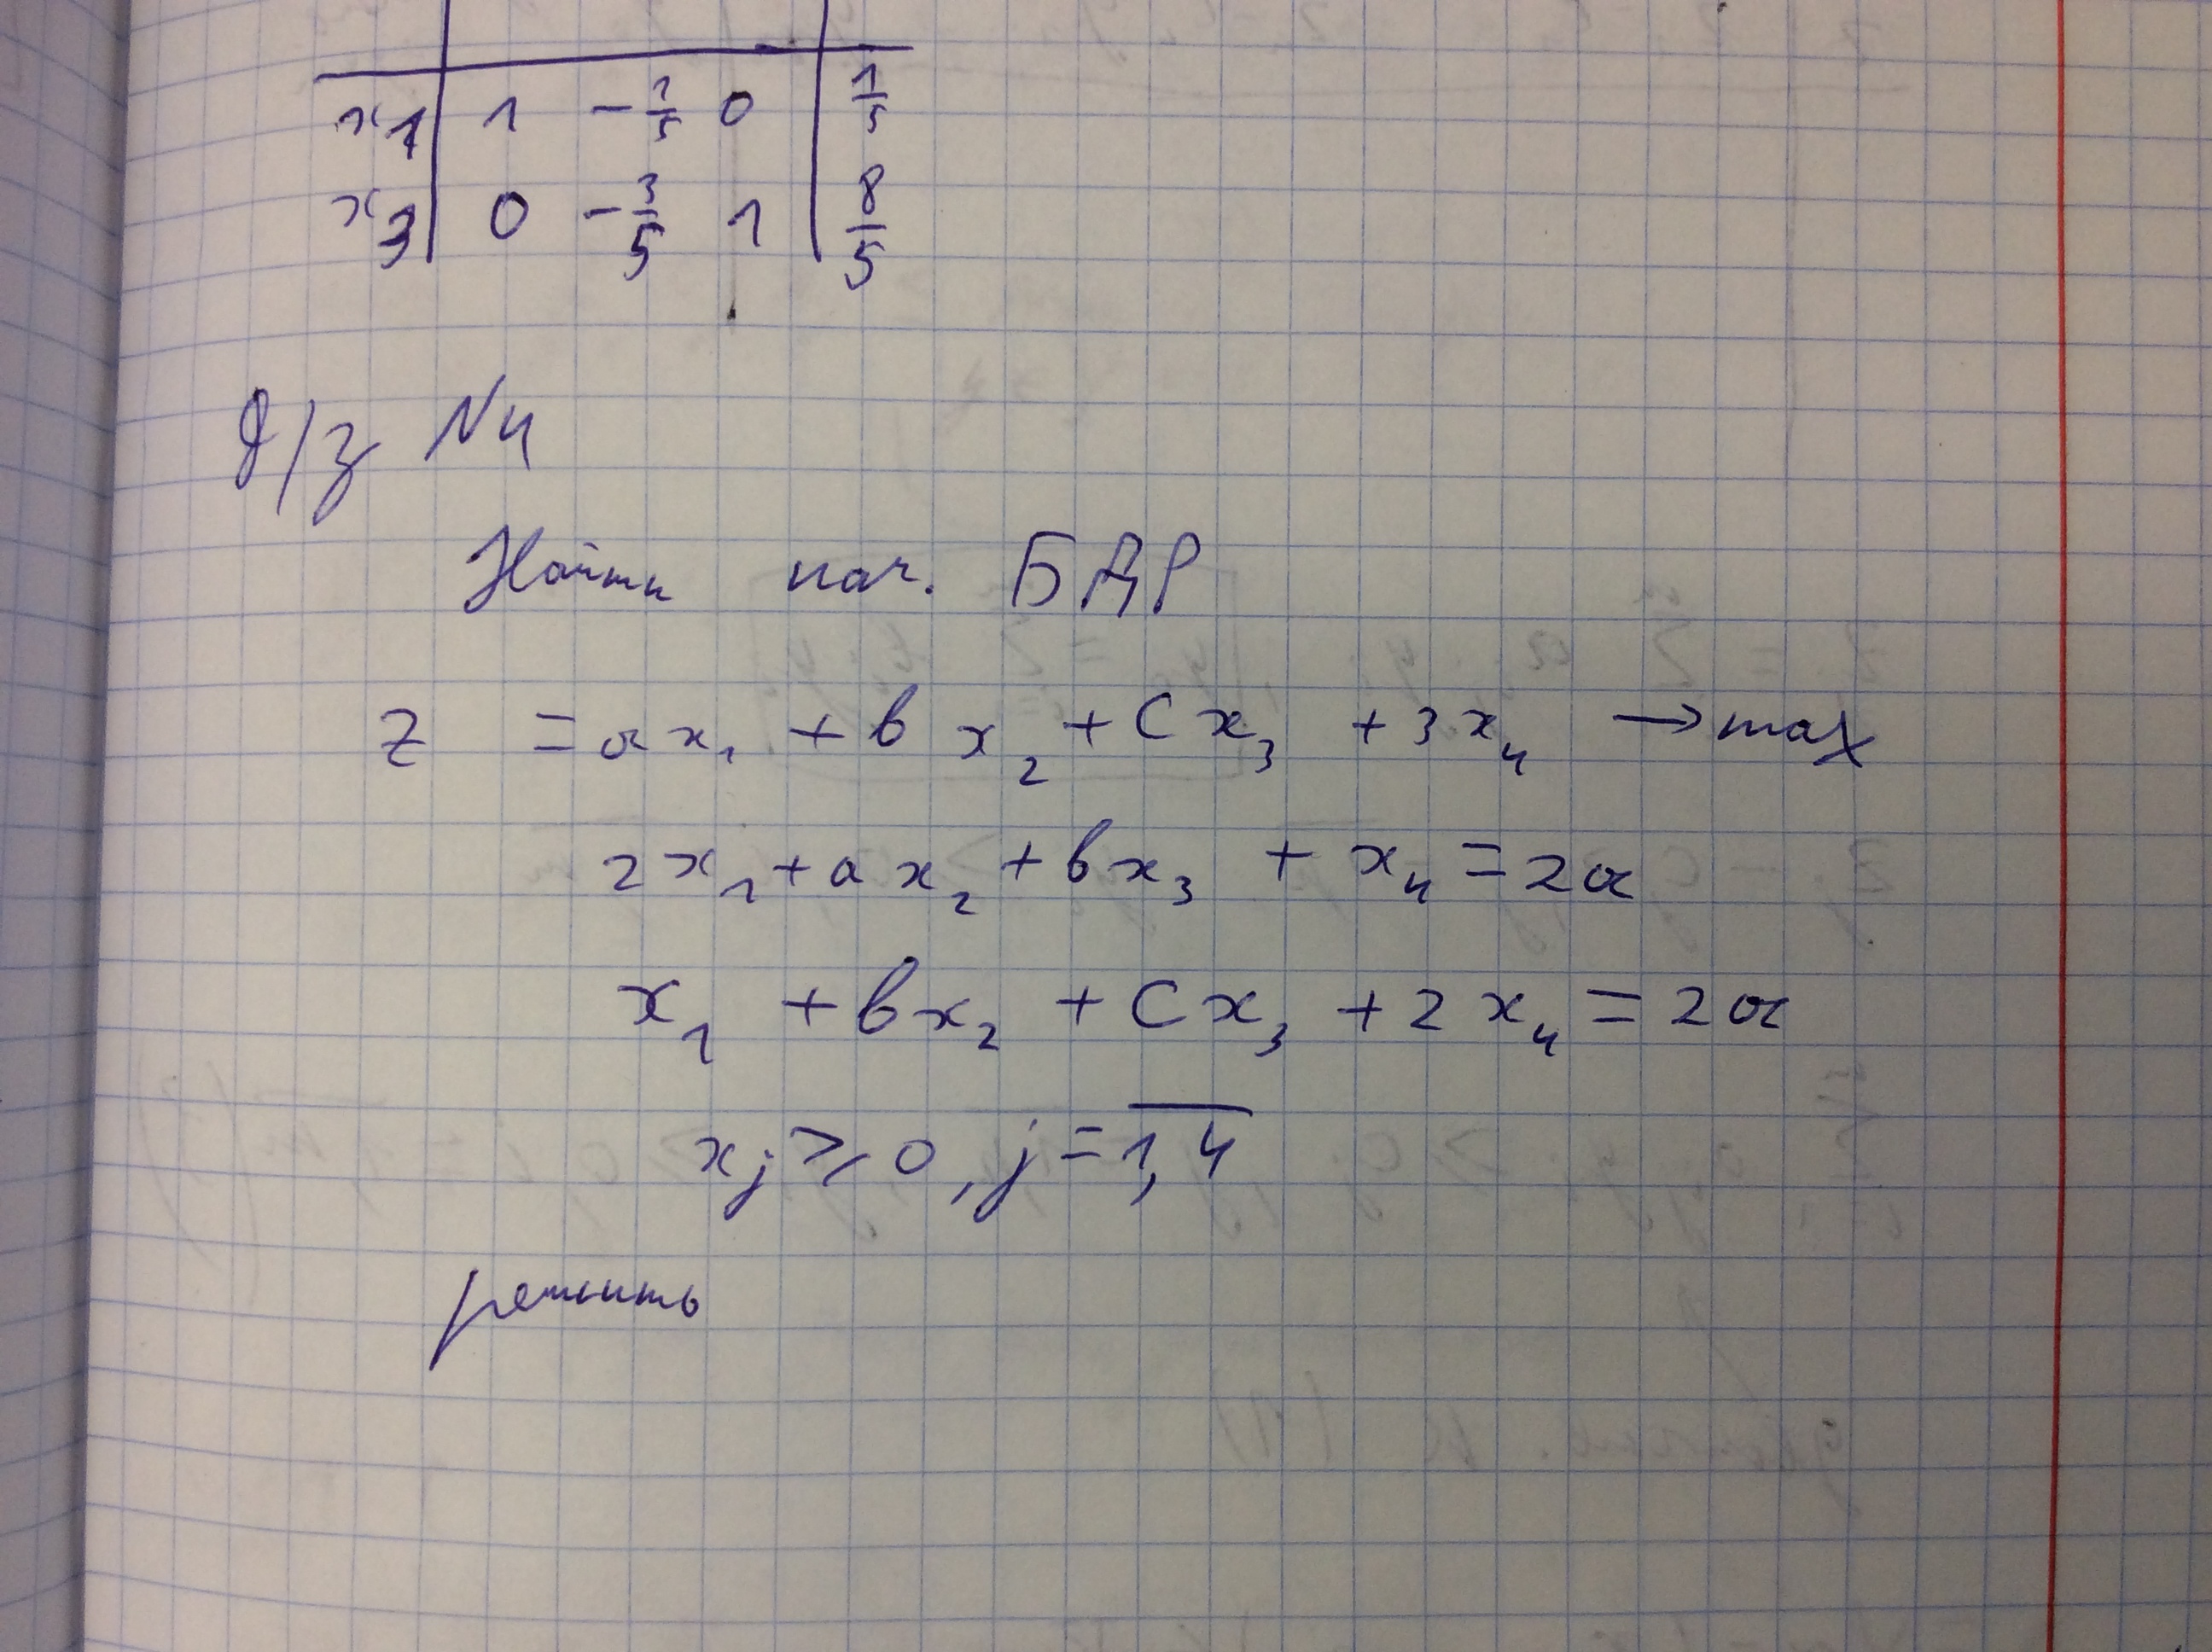 x₁ | 1 -1/5 0 | 1/5
x₃ | 0 -3/5 1 | 8/5
д/з N4
Найти нач. БДР
z = ax₁ + bx₂ + cx₃ + 3x₄ → max
2x₁ + ax₂ + bx₃ + x₄ = 2a
x₁ + bx₂ + cx₃ + 2x₄ = 2a
xⱼ ⩾ 0, j = 1,4
решить